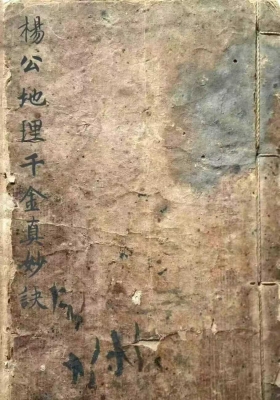 楊公地理千金真妙訣